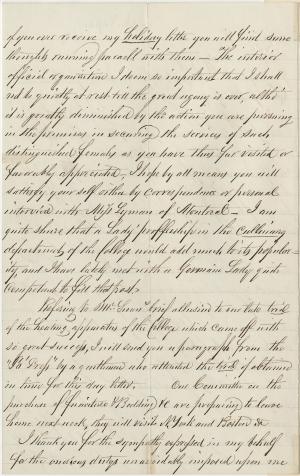 if you ever receive my Holiday letter you will find some
thoughts running parallel with them — The interior
official organization I deem so important that I shall
not be quietly at rest till the great agony is over, altho'
it is greatly diminished by the action you are pursuing
in the premises in securing the services of such
distinguished females as you have thus far visited or
favorably appreciated, I hope by all means you will
satisfy your self either by correspondence or personal
interview with Miss Lyman of Montreal — I am
quite sure that a Lady professorship in the Culinary
department of the College would add much to its popular-
ity, and I have lately met with a German Lady quite
competent to fill that post.
Refering to Mr. brief allusion to our late trial
of the heating apparatus of the College which came off with
so great success, I will send you a paragraph from the
"Po' Press" by a gentleman who attended the trial if obtained
in time for this day letter. Our Committee on the
purchase of furniture & Bedding &c are preparing to leave
home next week, they will visit N. York and Boston &c
I thank you for the sympathy expressed in my behalf
for the onerous dutys unavoidably imposed upon me